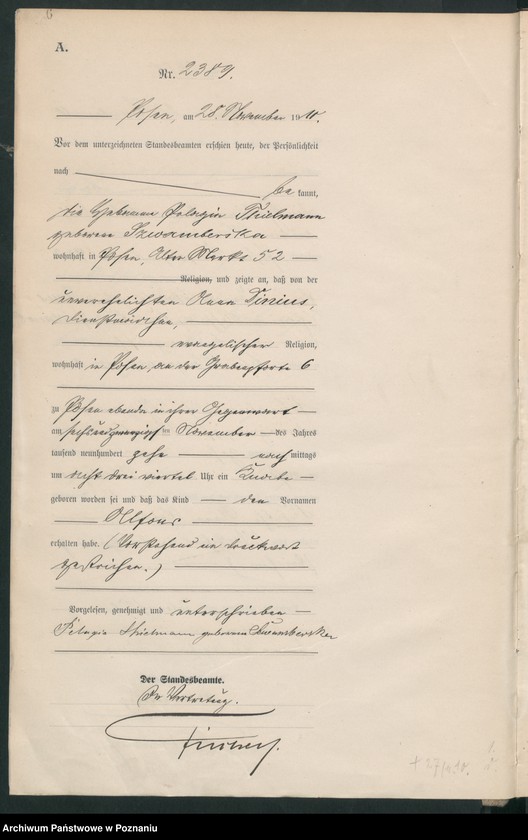 A.
Nr. 2389.
Posen, am 28. November 1910.
Vor dem unterzeichneten Standesbeamten erschien heute, der Persönlichkeit
nach
be kannt,
die Hebamme Pelagia Thielmann
geborene Szwamberska
wohnhaft in Posen, Alter Markt 52
Religion, und zeigte an, daß von der
unverehelichten Anna Tinius,
Dienstmädchen,
evangelischer Religion,
wohnhaft in Posen, an der Grabenpforte 6
zu Posen ebenda in ihrer Gegenwart
am sechsundzwanzigsten November des Jahres
tausend neunhundert zehn nachmittags
um acht drei viertel Uhr ein Knabe
geboren worden sei und daß das Kind den Vornamen
Alfons
erhalten habe. (Vorstehend ein Druckwort
gestrichen.)
Vorgelesen, genehmigt und unterschrieben
Pelagia Thielmann geborene Szwamberska
Der Standesbeamte.
In Vertretung.
Archiwum Państwowe w Poznaniu